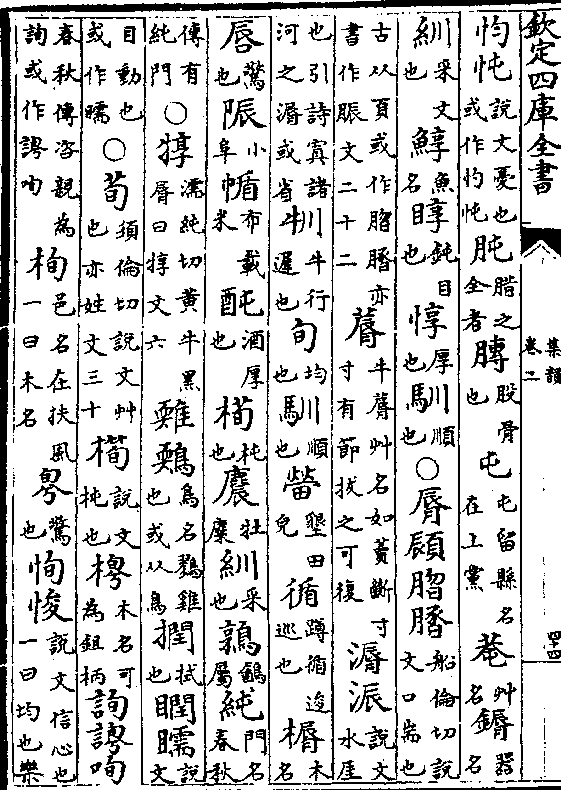 欽定四庫全書
集韻
卷二
忳說文憂也或作忳肫腊之全者膞股骨也屯屯留縣名在上黨艸名錞器名
紃采文也鯙魚名㬀鈍目也惇厚也馴順也○脣顄船倫切說文口耑也
古从頁或作亦書作脤文二十二牛蓐艸名如薲斷寸寸有節拔之可復漘說文水厓
也引詩寘諸河之漘或省牛行遲也旬均也馴順也墾田皃循蹲循逡巡也楯木名
唇驚也陙小阜布載米酒厚也橁杶也麎牡麋紃采也鶉鷂屬純門名春秋
傳有純門○犉濡純切黃牛黑脣曰犉文六鳥名雞也或从鳥撋拭也瞤說文
目動也或作○荀須倫切說文艸也亦姓文三十橁說文杶也木名可為鉏柄詢咰
春秋傳咨親為詢或作咰栒邑名在扶風一曰木名驚也恂悛說文信心也一曰均也樂